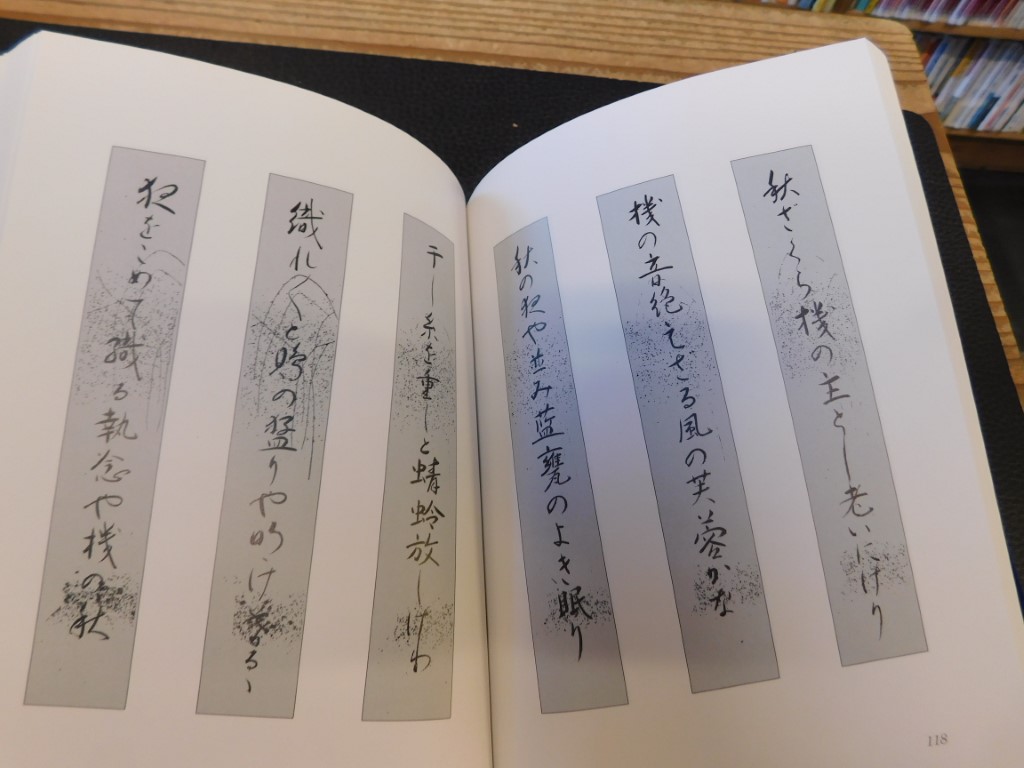 秋ざくら機の主とし老いにけり
機の音絶えざる風の芙蓉かな
秋の夜や並み藍甕のよき眠り
干し糸を重しと蜻蛉放しけわ
織れ〱との猛りや明け
夜をこめて織る執念や機の秋
118